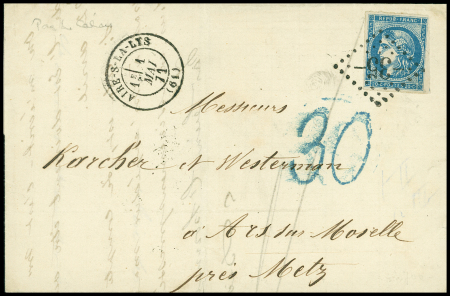 AIRE-S-LA-LYS
1E
1
MAI
71
(61)
REPUB. FRANC.
Messieurs
30
Karcher et Westerman
à Ars sur Moselle
près Metz